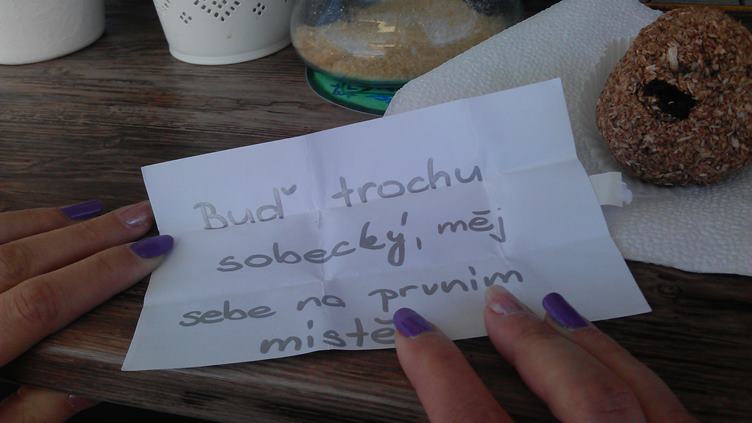 Buď trochu
sobecký, měj
sebe na prvním
místě